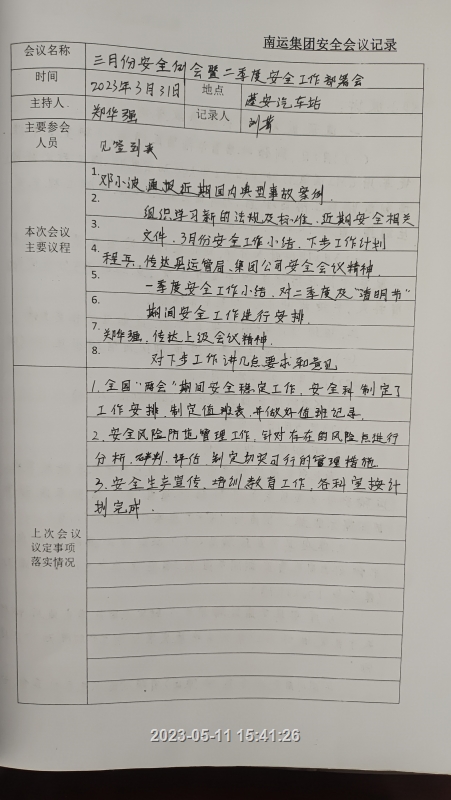 南运集团安全会议记录
会议名称 三月份安全例会暨二季度安全工作部署会
时间 2023年3月31日 地点 蓬安汽车站
主持人 郑华强 记录人
主要参会人员 见签到表
本次会议主要议程
1. 邓小波通报近期国内典型事故案例.
2. 组织学习新的法规及标准、近期安全相关
3. 文件、3月份安全工作小结、下步工作计划
4. 程兵、传达县运管局、集团公司安全会议精神.
5. 一季度安全工作小结、对二季度及“清明节”
6. 期间安全工作进行安排.
7. 郑华强、传达上级会议精神.
8. 对下步工作讲几点要求和意见
上次会议议定事项落实情况
1. 全国“两会”期间安全稳定工作，安全科制定了
工作安排、制定值班表、并做好值班记录.
2. 安全风险防范管理工作，针对存在的风险点进行
分析、研判、评估、制定切实可行的管理措施
3. 安全生产宣传、培训教育工作，各科室按计
划完成.
2023-05-11 15:41:26